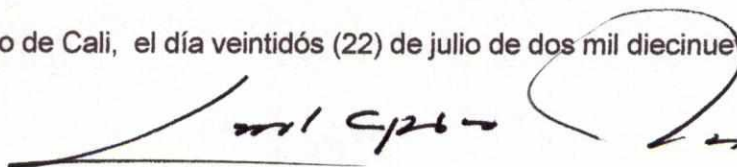 o de Cali, el día veintidós (22) de julio de dos mil diecinue